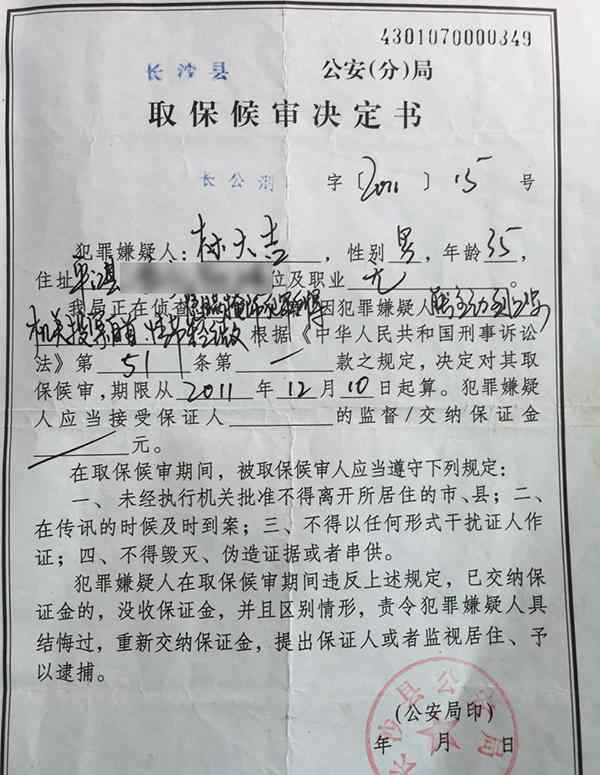 4301070000349
长沙县 公安(分)局
取保候审决定书
长公刑 字〔2011〕15号
犯罪嫌疑人：林大吉，性别男，年龄35，
住址 县 位及职业 无。
我局正在侦查 因犯罪嫌疑人
机关投案自首，情节 根据《中华人民共和国刑事诉讼
法》第51条第一款之规定，决定对其取
保候审，期限从2011年12月10日起算。犯罪嫌疑
人应当接受保证人 的监督/交纳保证金
元。
在取保候审期间，被取保候审人应当遵守下列规定：
一、未经执行机关批准不得离开所居住的市、县；二、
在传讯的时候及时到案；三、不得以任何形式干扰证人作
证；四、不得毁灭、伪造证据或者串供。
犯罪嫌疑人在取保候审期间违反上述规定，已交纳保
证金的，没收保证金，并且区别情形，责令犯罪嫌疑人具
结悔过，重新交纳保证金，提出保证人或者监视居住、予
以逮捕。
(公安局印)
年 月 日
长沙县公安局